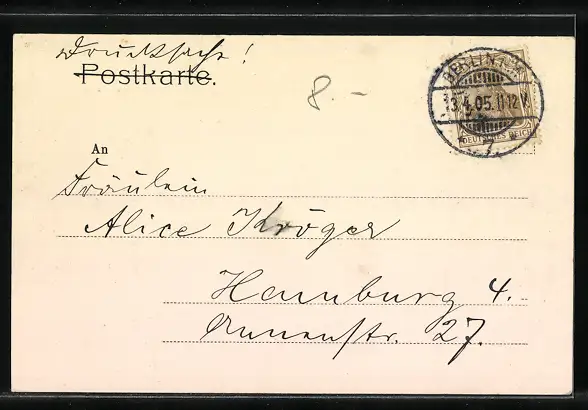 Drucksache!
Postkarte.
8.-
BERLIN N.W.
13.4.05.11-12V.
* 7 *
DEUTSCHES REICH
An
Fräulein
Alice Kröger
Hamburg 4.
Annenstr. 27.